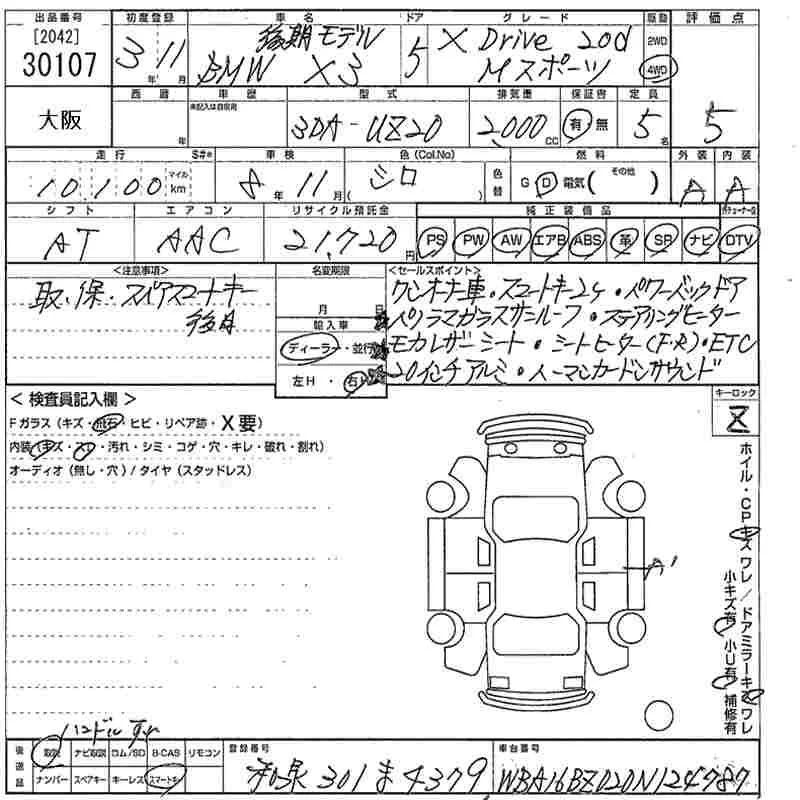 出品番号 初度登録 車名 ドア グレード 駆動 評価点
[2042] 後期モデル X Drive 20d 2WD
30107 3年 11月 BMW X3 5 Mスポーツ 4WD 5
西暦 車歴 型式 排気量 保証書 定員
大阪 年 未記入は自家用 3DA-UZ20 2,000CC 有・無 5名
走行 S#* 車検 色(Col.No) 燃料 外装 内装
10,100 マイル km 8年 11月 シロ ( ) 色替 G D 電気( その他 ) A A
シフト エアコン リサイクル預託金 純正装備品
AT AAC 21,720円 PS PW AW エアB ABS 革 SR ナビ DTV
<注意事項> 名変期限 <セールスポイント>
取・保・スペアスマートキー ワンオーナー車・スマートキー2ケ・パワーバックドア
後日 月 日 パノラマガラスサンルーフ・ステアリングヒーター
輸入車
ディーラー・並行 モカレザーシート・シートヒーター(F・R)・ETC
左H・右H 20インチアルミ・ハーマンカードンサウンド
<検査員記入欄> キーロック
Fガラス(キズ・飛石・ヒビ・リペア跡・X要)
内装(キズ・スレ・汚れ・シミ・コゲ・穴・キレ・破れ・割れ)
オーディオ(無し・穴)/タイヤ(スタッドレス)
A'
ホイル・CPキズワレ/ドアミラーキズワレ
小キズ有 小U有 補修有
ハンドル
後送品 取説 ナビ取説 ロム/SD B-CAS リモコン 登録番号 車台番号
ナンバー スペアキー キーレス スマートキー 和泉 301 ま 4379 WBA16BZ020N124787